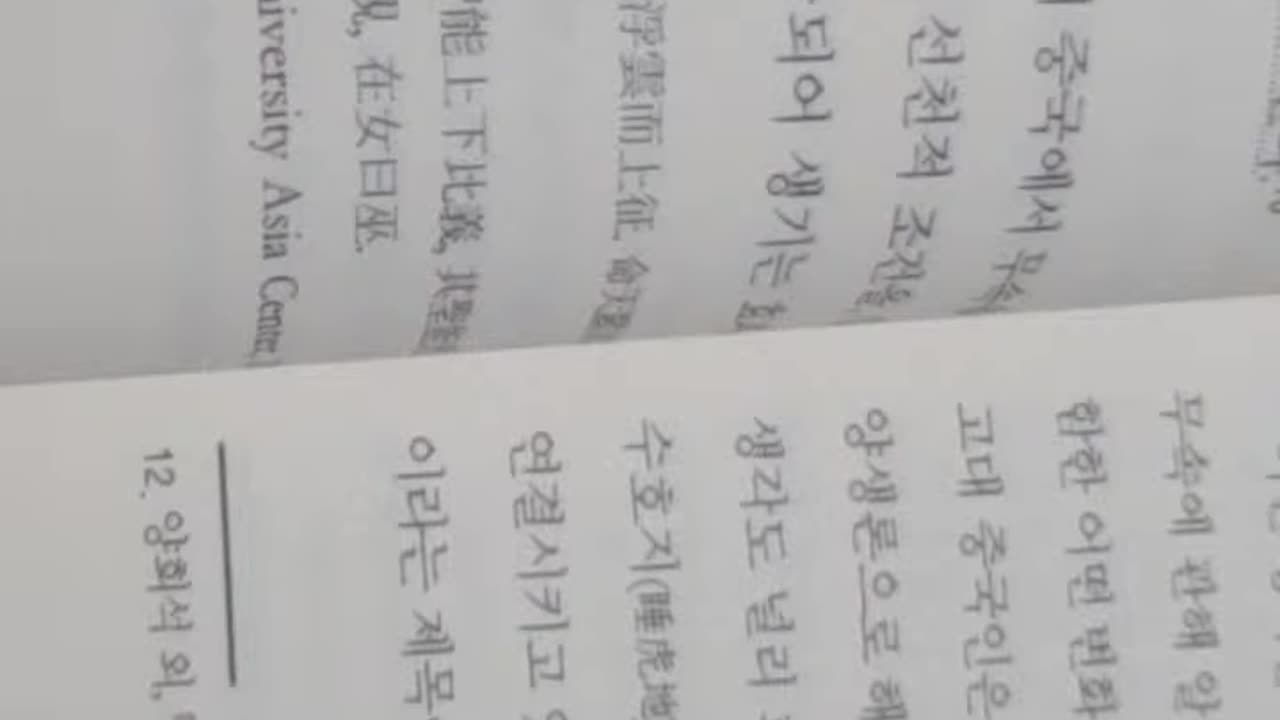 중국에서 무속
선천적 조건을
되어 생기는
浮雲而上征
能上下比義,
在女曰巫.
University Asia Center,
무속에 관해 알
함한 어떤 변화
고대 중국인은
양생론으로 해
생각도 널리
수호지(睡虎地
연결시키고
이라는 제목
12. 양회석 외,